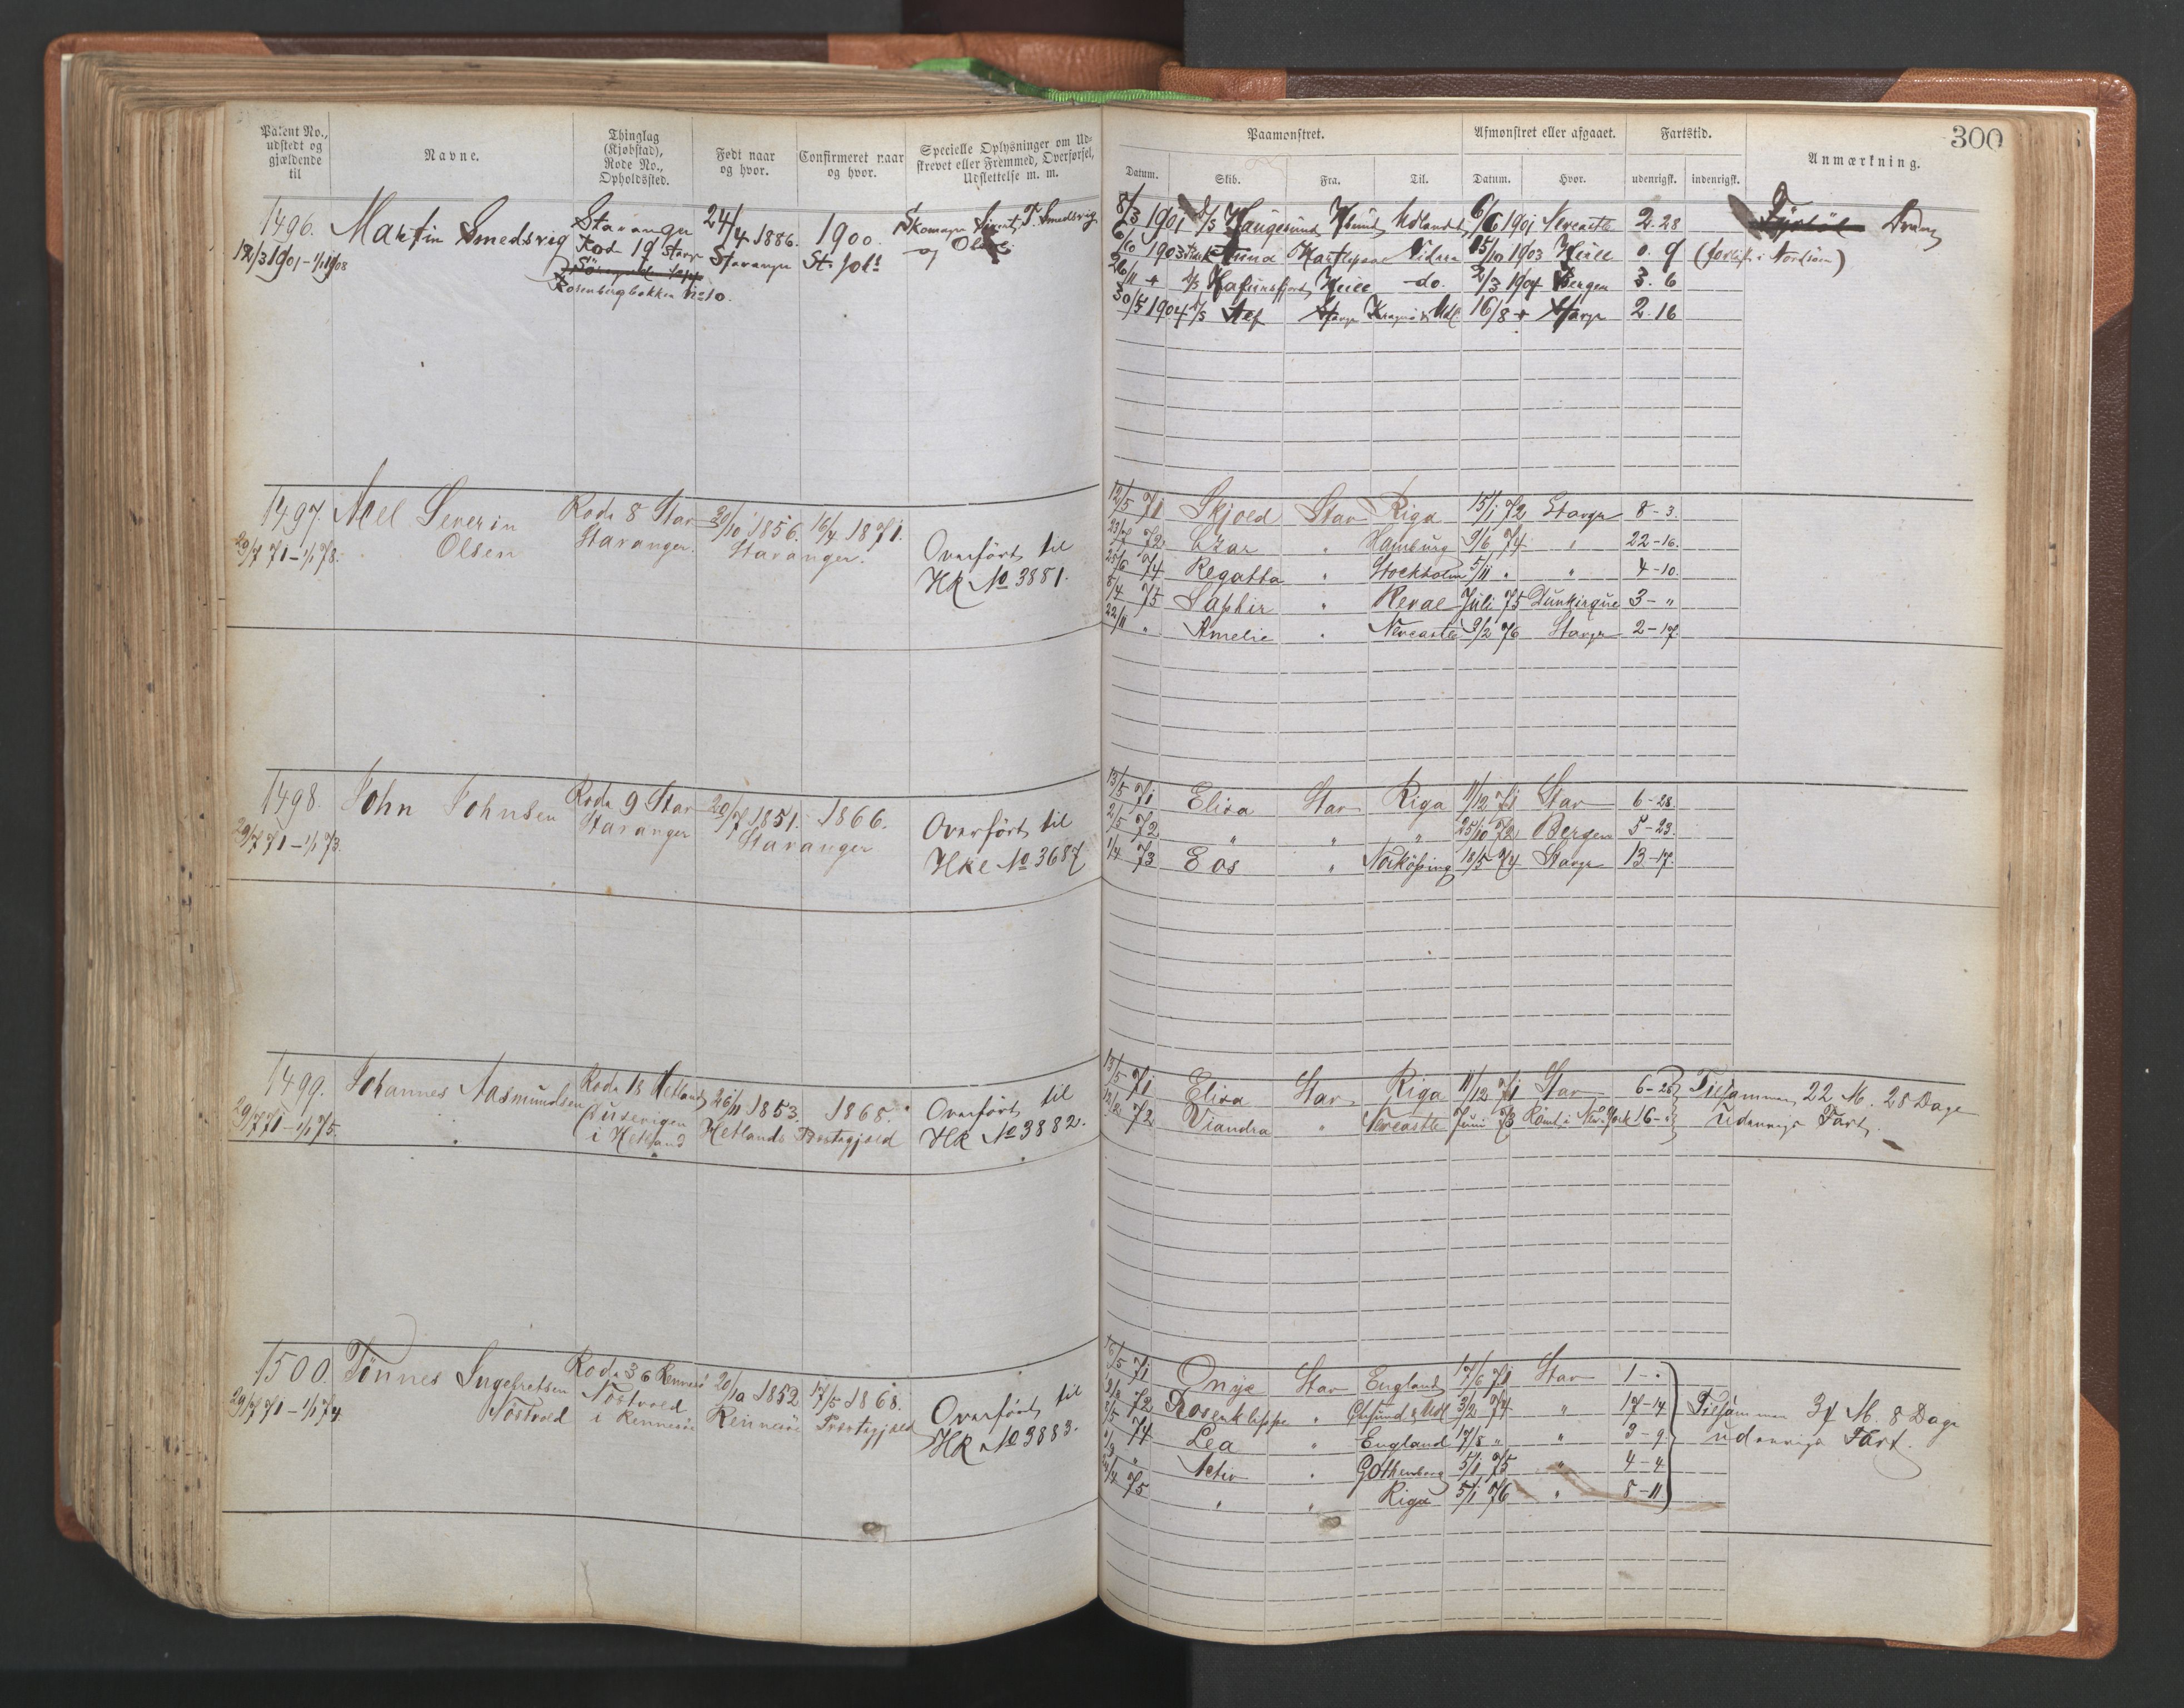 Patent No., udstedt og gjældende til
Navne.
Thinglag (Kjøbstad), Rode No., Opholdssted.
Født naar og hvor.
Confirmeret naar og hvor.
Specielle Oplysninger om Udskrevet eller Fremmed, Overførsel, Udslettelse m. m.
Paamønstret.
Afmønstret eller afgaaet.
Fartstid.
Anmærkning.
300
Datum.
Skib.
Fra.
Til.
Datum.
Hvor.
udenrigsk.
indenrigsk.
1496. Martin Smedsvig Stavanger 24/4 1886. 1900. Skomager Sivert T. Smedsvig
12/3 1901 - 1/1 1908 Rod 19 Stavgr Stavanger St. Joh: og
Rosenbergbakken No 10.
8/3 1901 D/S Haugesund Hsund Udlandet 6/6 1901 Newcastle 2. 28
6/10 1903 Anna Hartlepool 15/10 1903 Hull 0. 9 (forlist i Nordsøen)
26/11 D/S Hafursfjord Hull do. 2/3 1904 Bergen 3. 6
30/5 1904 D/S Stavgr Udl. 16/8 Stavgr 2. 16
1497. Axel Severin Rode 8 Stav 30/10 1856. 16/4 1871.
29/7 71 - 1/1 78. Olsen Stavanger. Stavanger. Overført til
HR No 3881.
12/5 71 Skjold Stav Riga 15/1 72 Stavgr 8 - 3.
23/4 72 Czar " Hamburg 9/6 74 " 22 - 16.
25/6 74 Regatta " Stockholm 5/11 " " 4 - 10.
8/4 75 Saphir " Reval Juli 75 Dunkirque 3 - "
22/11 " Amelie " Newcastle 9/2 76 Stavgr 2 - 17.
1498. John Johnsen Rode 9 Stav 20/7 1851. 1866. Overført til
29/7 71 - 1/1 73. Stavanger Stavanger HRe No 3687
13/5 71 Elisa Stav Riga 11/12 71 Stav 6 - 28
2/5 72 " " " 25/10 72 Bergen 5 - 23.
1/4 73 Eos " Norköping 18/5 74 Stavgr 13 - 17.
1499. Johannes Aasmundsen Rode 18 Hetland 26/11 1853. 1868. Overført til
29/7 71 - 1/1 75. i Hetland Hetlands Præstegjæld HR No 3882.
13/5 71 Elisa Stav Riga 11/12 71 Stav 6 - 28 Tilsammen 22 M. 28 Dage
12/2 72 Viandra " Newcastle Juni 73 Römt i New York 16 - " udenrigs Fart.
1500. Tönnes Ingebretsen Rode 36 Rennesö 20/10 1852 17/5 1868. Overført til
29/7 71 - 1/1 74 Nöstvold Nöstvold i Rennesö Rennesö Præstegjæld HR No 3883.
16/5 71 Onyx Stav England 17/6 71 Stav 1 - "
72 Rosenklippe " 3/2 74 " 17 - 14 Tilsammen 34 M. 8 Dage
8/5 74 Lea " England 17/8 " " 3 - 9 udenrigs Fart.
" Activ " Gothenborg 5/1 75 " 4 - 4
75 " " Riga 5/1 76 " 8 - 11